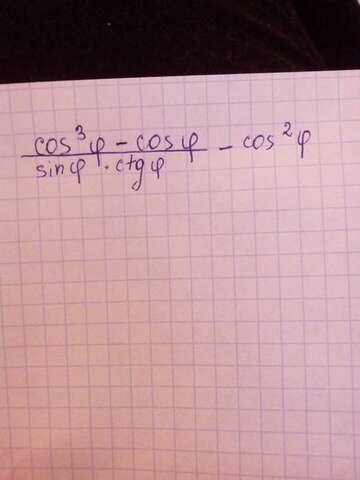 cos³φ - cosφ
sinφ · ctgφ - cos²φ